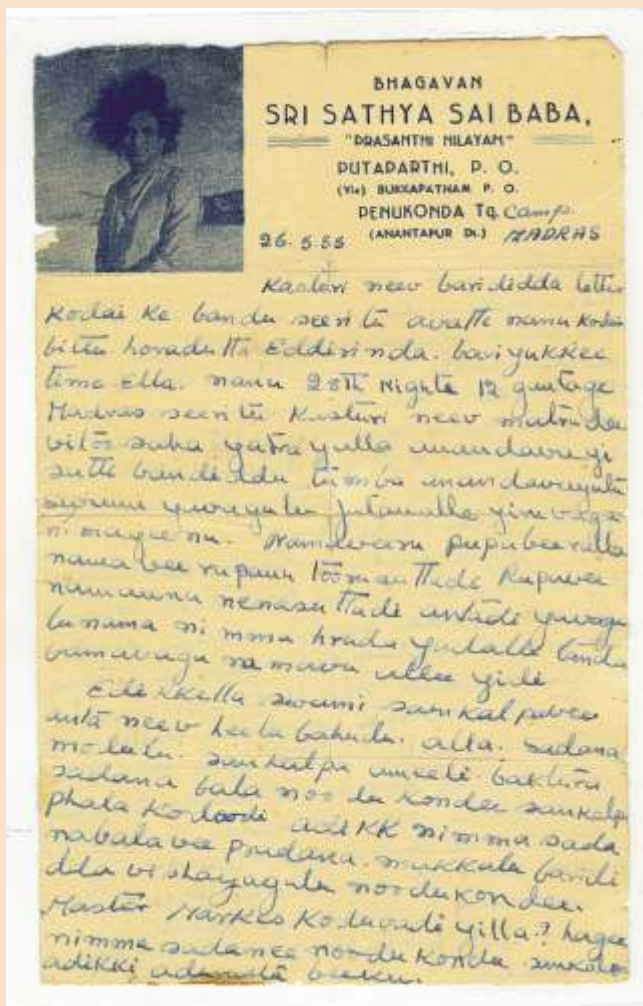 BHAGAVAN
SRI SATHYA SAI BABA,
"PRASANTHI NILAYAM"
PUTAPARTHI, P. O.
(Via) BUKKAPATNAM P. O.
PENUKONDA Tq. Camp.
(ANANTAPUR Dt.) MADRAS
26.5.55
Kasturi neev barididda letter
Kodai ke bandu seeritu avatte nanu Kodai
bittu horadutta Eddirinda. bariyukkee
time Ella. nanu 25th Nighte 12 guntage
Madras seeritu Kasturi neev matru
saha yatra yulla anandavagi
sutti bandiddu tumba anandavayutu
yavagalu yiruvaga
nimage enu. Namaveeru
namavee rupanu toorisuttade Rupavee
namavanu nenasuttade antade yavaga
nimma hrudayadalli
namavu allee yide
Edekkella swami sankalpavee
anta neev heelabahudu. alla. sadana
modalu. sankalpa ameeli. baktura
sadana bala noodu kondee sankalpa
phala Kodoodi adikk nimma sada
nabalavee pradana. makkalu baridi
dda vishayagalu noodukondee.
Master Markes Koduvadi yilla? hagee
nimma sadanee noodukondu sankalpa
adikki beeku.